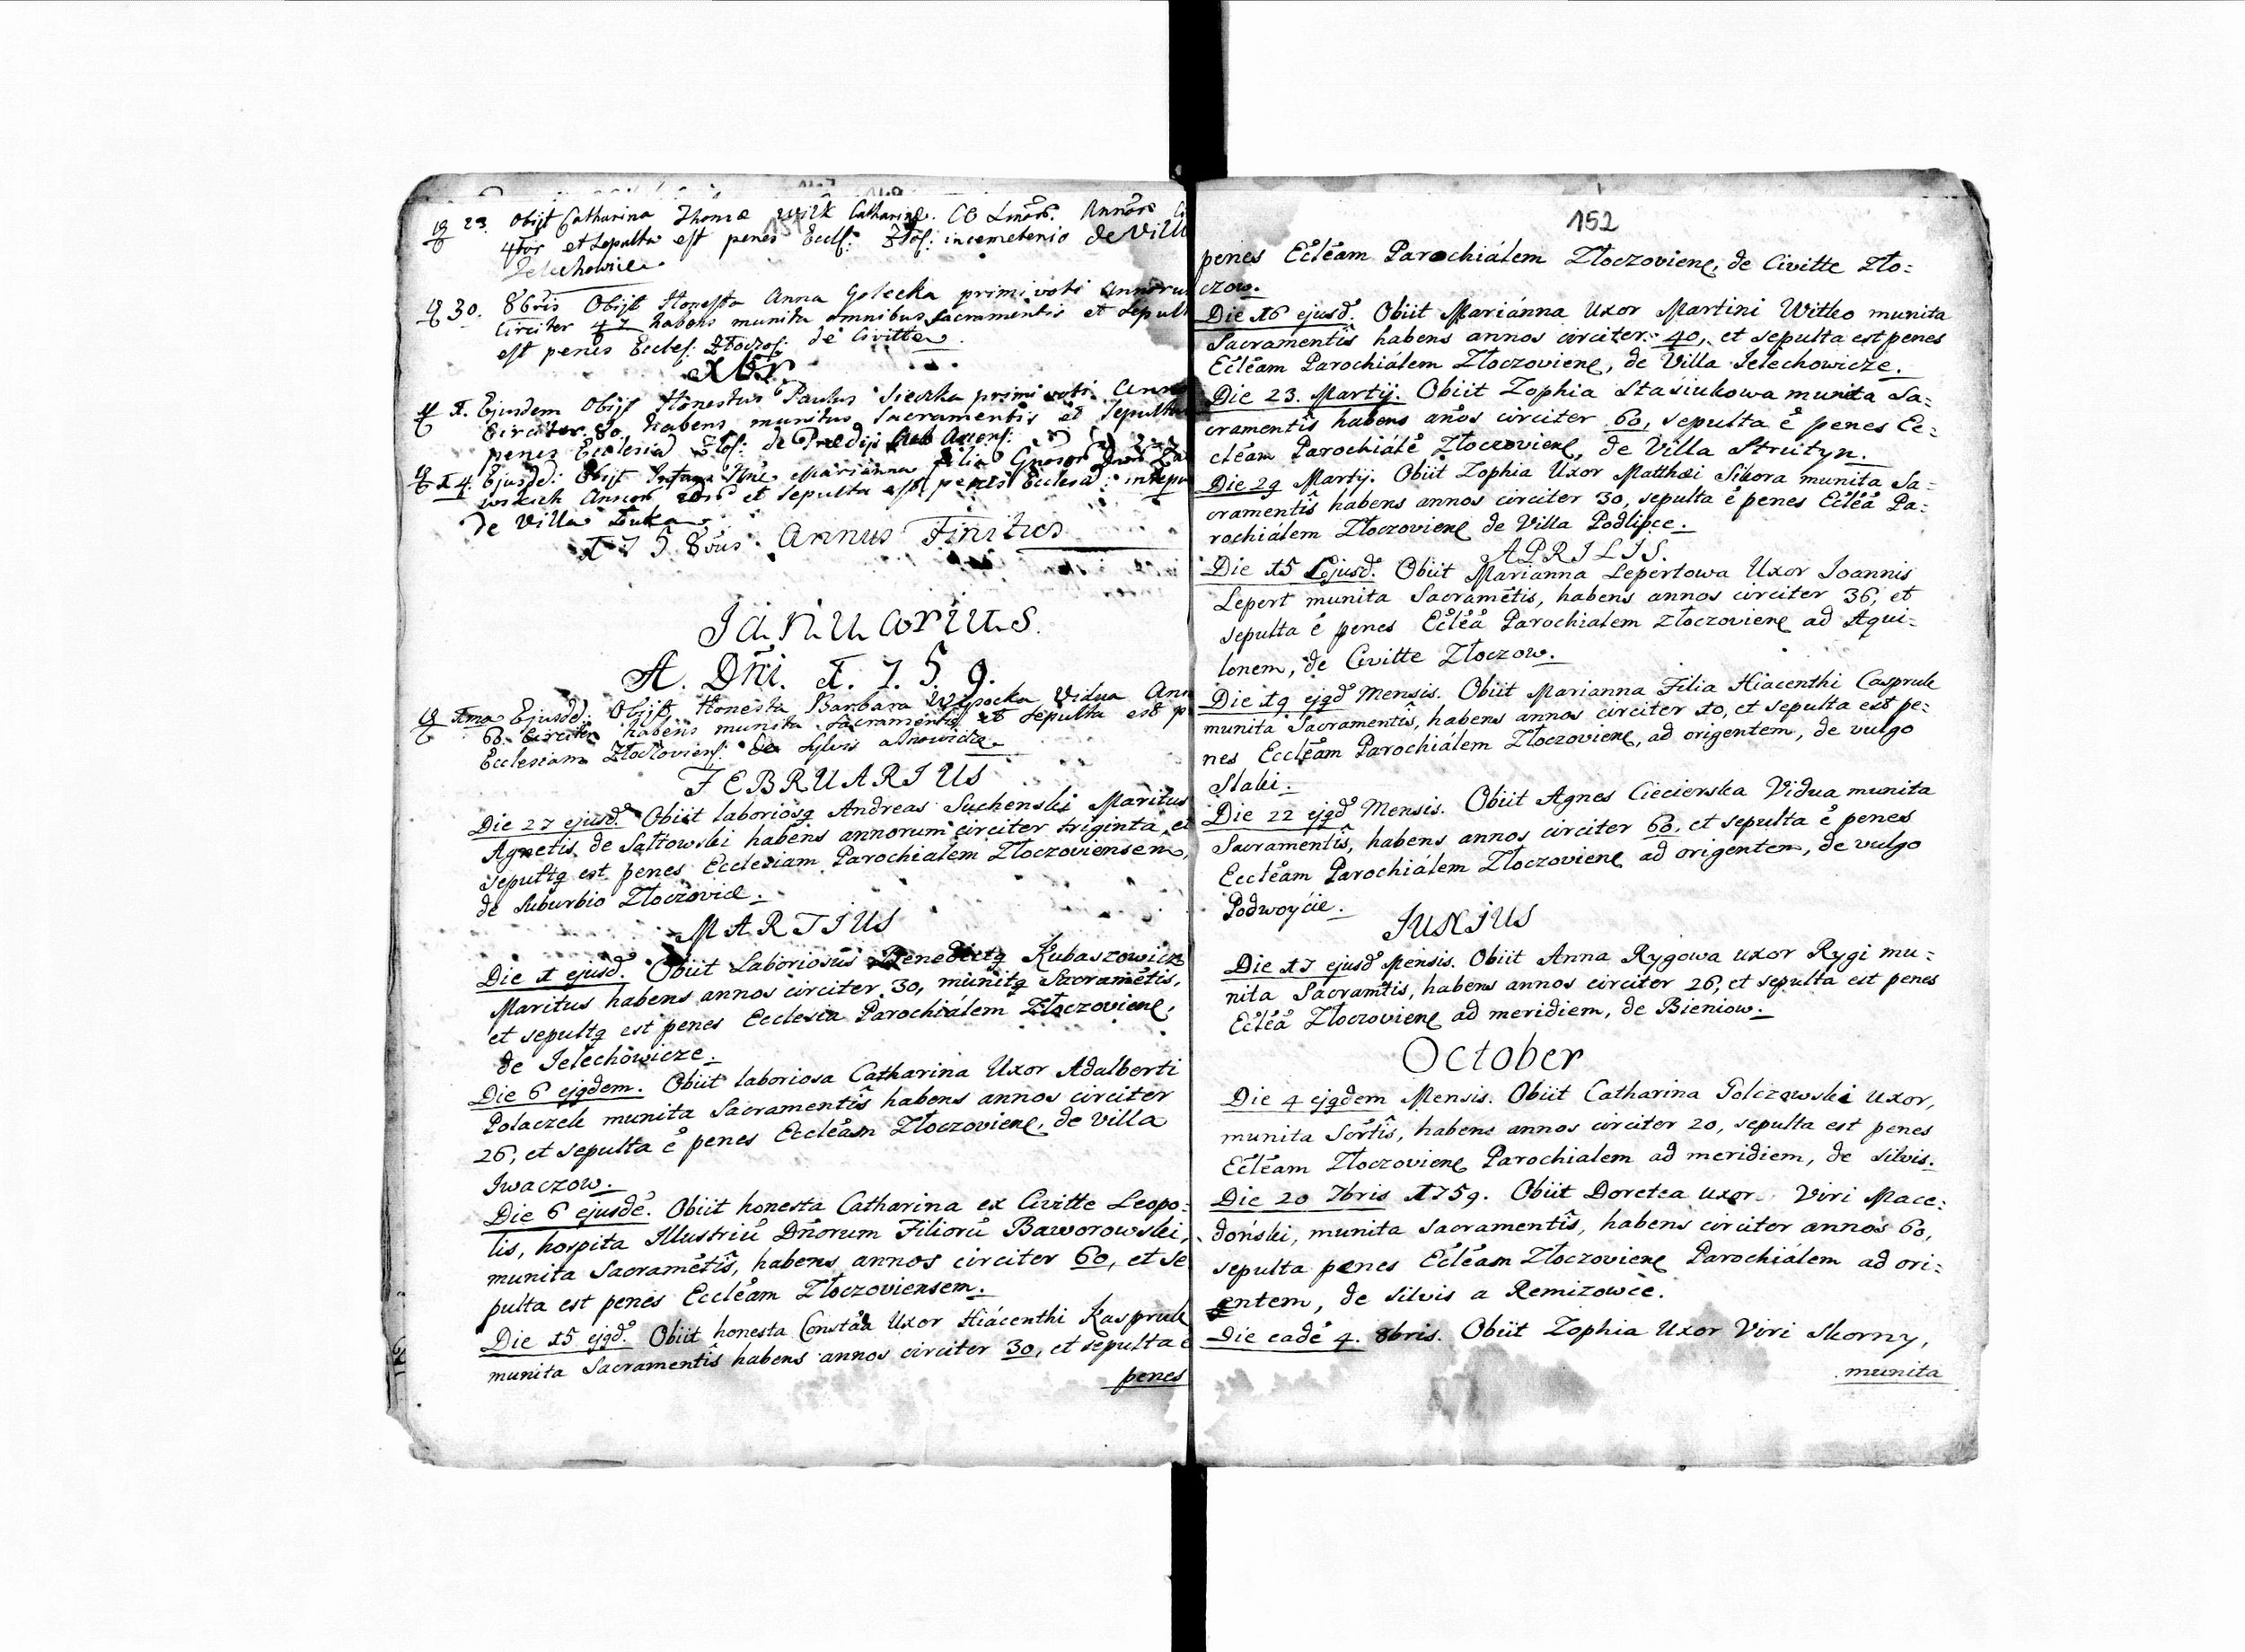 23. Obijt Catharina Thomæ Wilk Catharinæ
4tor et sepulta est penes Eccls: Złos: in cemeterio de Villa
Jelechowice
30. 8bris Obijt Honesta Anna Golecka primi voti Annoru
circiter 47 habens munita omnibus sacramentis et sepult
est penes Eccles: Złoczos: de Civitte
Xbr
1. Ejusdem Obijt Honestus Paulus Sieczka primi voti Anno
circiter 80 habens munitus Sacramentis et sepultus
penes Ecclesia Złos: de Prædijs
14. Ejusdē: Obijt Infans Marianna filia
et sepulta est penes Ecclesia:
de Villa Łuka
1758vus Annus Finitus
Januarius.
A. Dñi. 1. 7. 5. 9.
1ma Ejusdē: Obijt Honesta Barbara Wysocka Vidua Ann
60 circiter habens munita sacramentis et sepulta est p
Ecclesiam Złoczoviens: de Sylvis
FEBRUARIUS
Die 27 ejusd. Obiit laboriosꝯ Andreas Suchenski Maritus
Agnetis de Sałtowski habens annorum circiter triginta et
sepultꝯ est penes Ecclesiam Parochialem Złoczoviensem,
de Suburbio Złoczoviæ.
MARTIUS
Die 1 ejusd. Obiit Laboriosus Benedictꝯ Kubaszowicz
Maritus habens annos circiter 30, munitꝯ Sacramētis,
et sepultꝯ est penes Ecclesia Parochiálem Złoczovienę,
de Jelechowicze.
Die 6 ejꝯdem. Obiit laboriosa Catharina Uxor Adalberti
Polaczek munita Sacramentis habens annos circiter
26, et sepulta ē penes Eccleam Złoczovienę, de villa
Iwaczow.
Die 6 ejusdē. Obiit honesta Catharina ex Civitte Leopo=
lis, hospita Illustriū Dñorum Filiorū Baworowski,
munita Sacramētis, habens annos circiter 60, et se
pulta est penes Eccleam Złoczoviensem.
Die 15 ejꝯd. Obiit honesta Constāa Uxor Hiácenthi Kaspruk
munita Sacramentis habens annos circiter 30, et sepulta ē
penes
152
penes Ecleam Parochiálem Złoczovienę, de Civitte Zło=
czow.
Die 16 ejusd. Obiit Mariánna Uxor Martini Witko munita
Sacramentis habens annos circiter 40, et sepulta est penes
Ecleam Parochiálem Złoczovienę, de Villa Jelechowicze.
Die 23. Martij. Obiit Zophia Stasiukowa munita Sa=
cramentis habens años circiter 60, sepulta ē penes Ec=
cleam Parochiálē Złoczovienę, de Villa Strutyn.
Die 29 Martij. Obiit Zophia Uxor Matthæi Sikora munita Sa=
cramentis habens annos circiter 30, sepulta ē penes Ecleā Pa=
rochiálem Złoczovienę de Villa Podlipce.
APRILIS.
Die 15 Ejusd. Obiit Marianna Lepertowa Uxor Joannis
Lepert munita Sacramētis, habens annos circiter 36, et
sepulta ē penes Ecleā Parochiálem Złoczovienę ad Aqui=
lonem, de Civitte Złoczow.
Die 19 ejꝯd Mensis. Obiit Marianna Filia Hiacenthi Caspruk
munita Sacramentis, habens annos circiter 10, et sepulta est pe=
nes Eccleam Parochiálem Złoczovienę, ad origentem, de vulgo
Slaki.
Die 22 ejꝯd Mensis. Obiit Agnes Ciecierska Vidua munita
Sacramentis, habens annos circiter 60, et sepulta ē penes
Eccleam Parochiálem Złoczovienę ad origentem, de vulgo
Podwoycie.
IUNIUS
Die 17 ejusd Mensis. Obiit Anna Rygowa uxor Rygi mu=
nita Sacramtis, habens annos circiter 26, et sepulta est penes
Ecleā Złoczovienę ad meridiem, de Bieniow.
October
Die 4 ejꝯdem Mensis. Obiit Catharina Golczowski uxor,
munita Scrtis, habens annos circiter 20, sepulta est penes
Ecleam Złoczovienę Parochialem ad meridiem, de silvis.
Die 20 7bris 1759. Obiit Doretea uxor Viri Mace=
doński, munita Sacramentis, habens circiter annos 60,
sepulta penes Ecleam Złoczovienę Parochiálem ad ori=
entem, de silvis a Remizowce.
Die eadē 4. 8bris. Obiit Zophia Uxor Viri Skorny,
munita